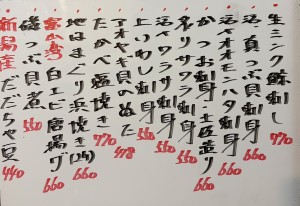 生ミンク鯨刺し
活真つぶ貝刺身
活オオモンハタ刺身
サワラ刺身
かつお刺身・土佐造り 660
ワラサ刺身 550
上いわし刺身 550
アオヤギ貝のぬた 478
たかべ塩焼き 770
地はまぐり浜焼き(2ケ) 660
白エビ唐揚げ 660
磯つぶ貝煮 550
新潟産だだちゃ豆 440